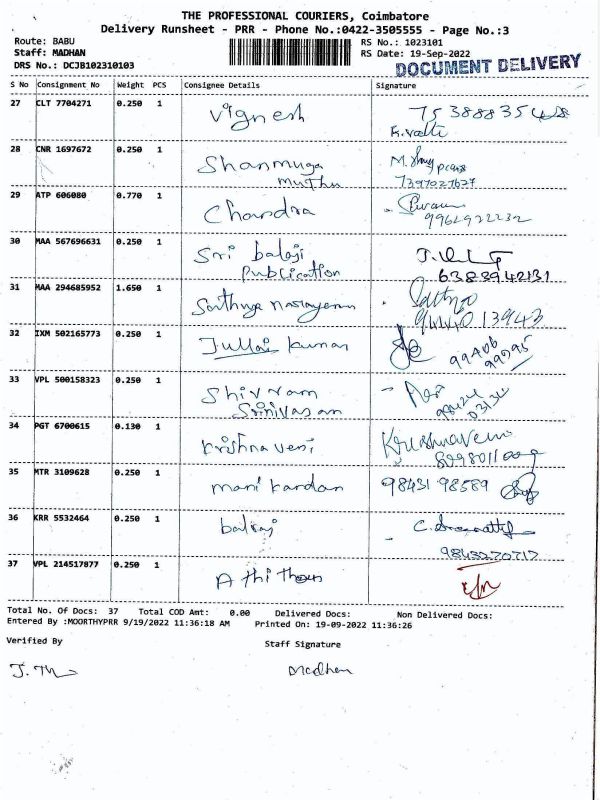 THE PROFESSIONAL COURIERS, Coimbatore
Delivery Runsheet - PRR - Phone No.:0422-3505555 - Page No.:3
Route: BABU
Staff: MADHAN
DRS No.: DCJB102310103
RS No.: 1023101
RS Date: 19-Sep-2022
DOCUMENT DELIVERY
S No Consignment No Weight PCS Consignee Details Signature
27 CLT 7704271 0.250 1 Vignesh
28 CNR 1697672 0.250 1 Shanmuga
muthu
29 ATP 606080 0.770 1 Chandra
30 MAA 567696631 0.250 1 Sri balaji
Publication 6383942131
31 MAA 294685952 1.650 1 Sathya narayanan
32 IXM 502165773 0.250 1 kumar
33 VPL 500158323 0.250 1 Shivram
Srinivasan
34 PGT 6700615 0.130 1 krishna veni Krushnaveni
35 MTR 3109628 0.250 1 mani kandan 98431 98589
36 KRR 5532464 0.250 1 balraj
9843270717
37 VPL 214517877 0.250 1
Total No. Of Docs: 37 Total COD Amt: 0.00 Delivered Docs: Non Delivered Docs:
Entered By :MOORTHYPRR 9/19/2022 11:36:18 AM Printed On: 19-09-2022 11:36:26
Verified By Staff Signature
Madhan